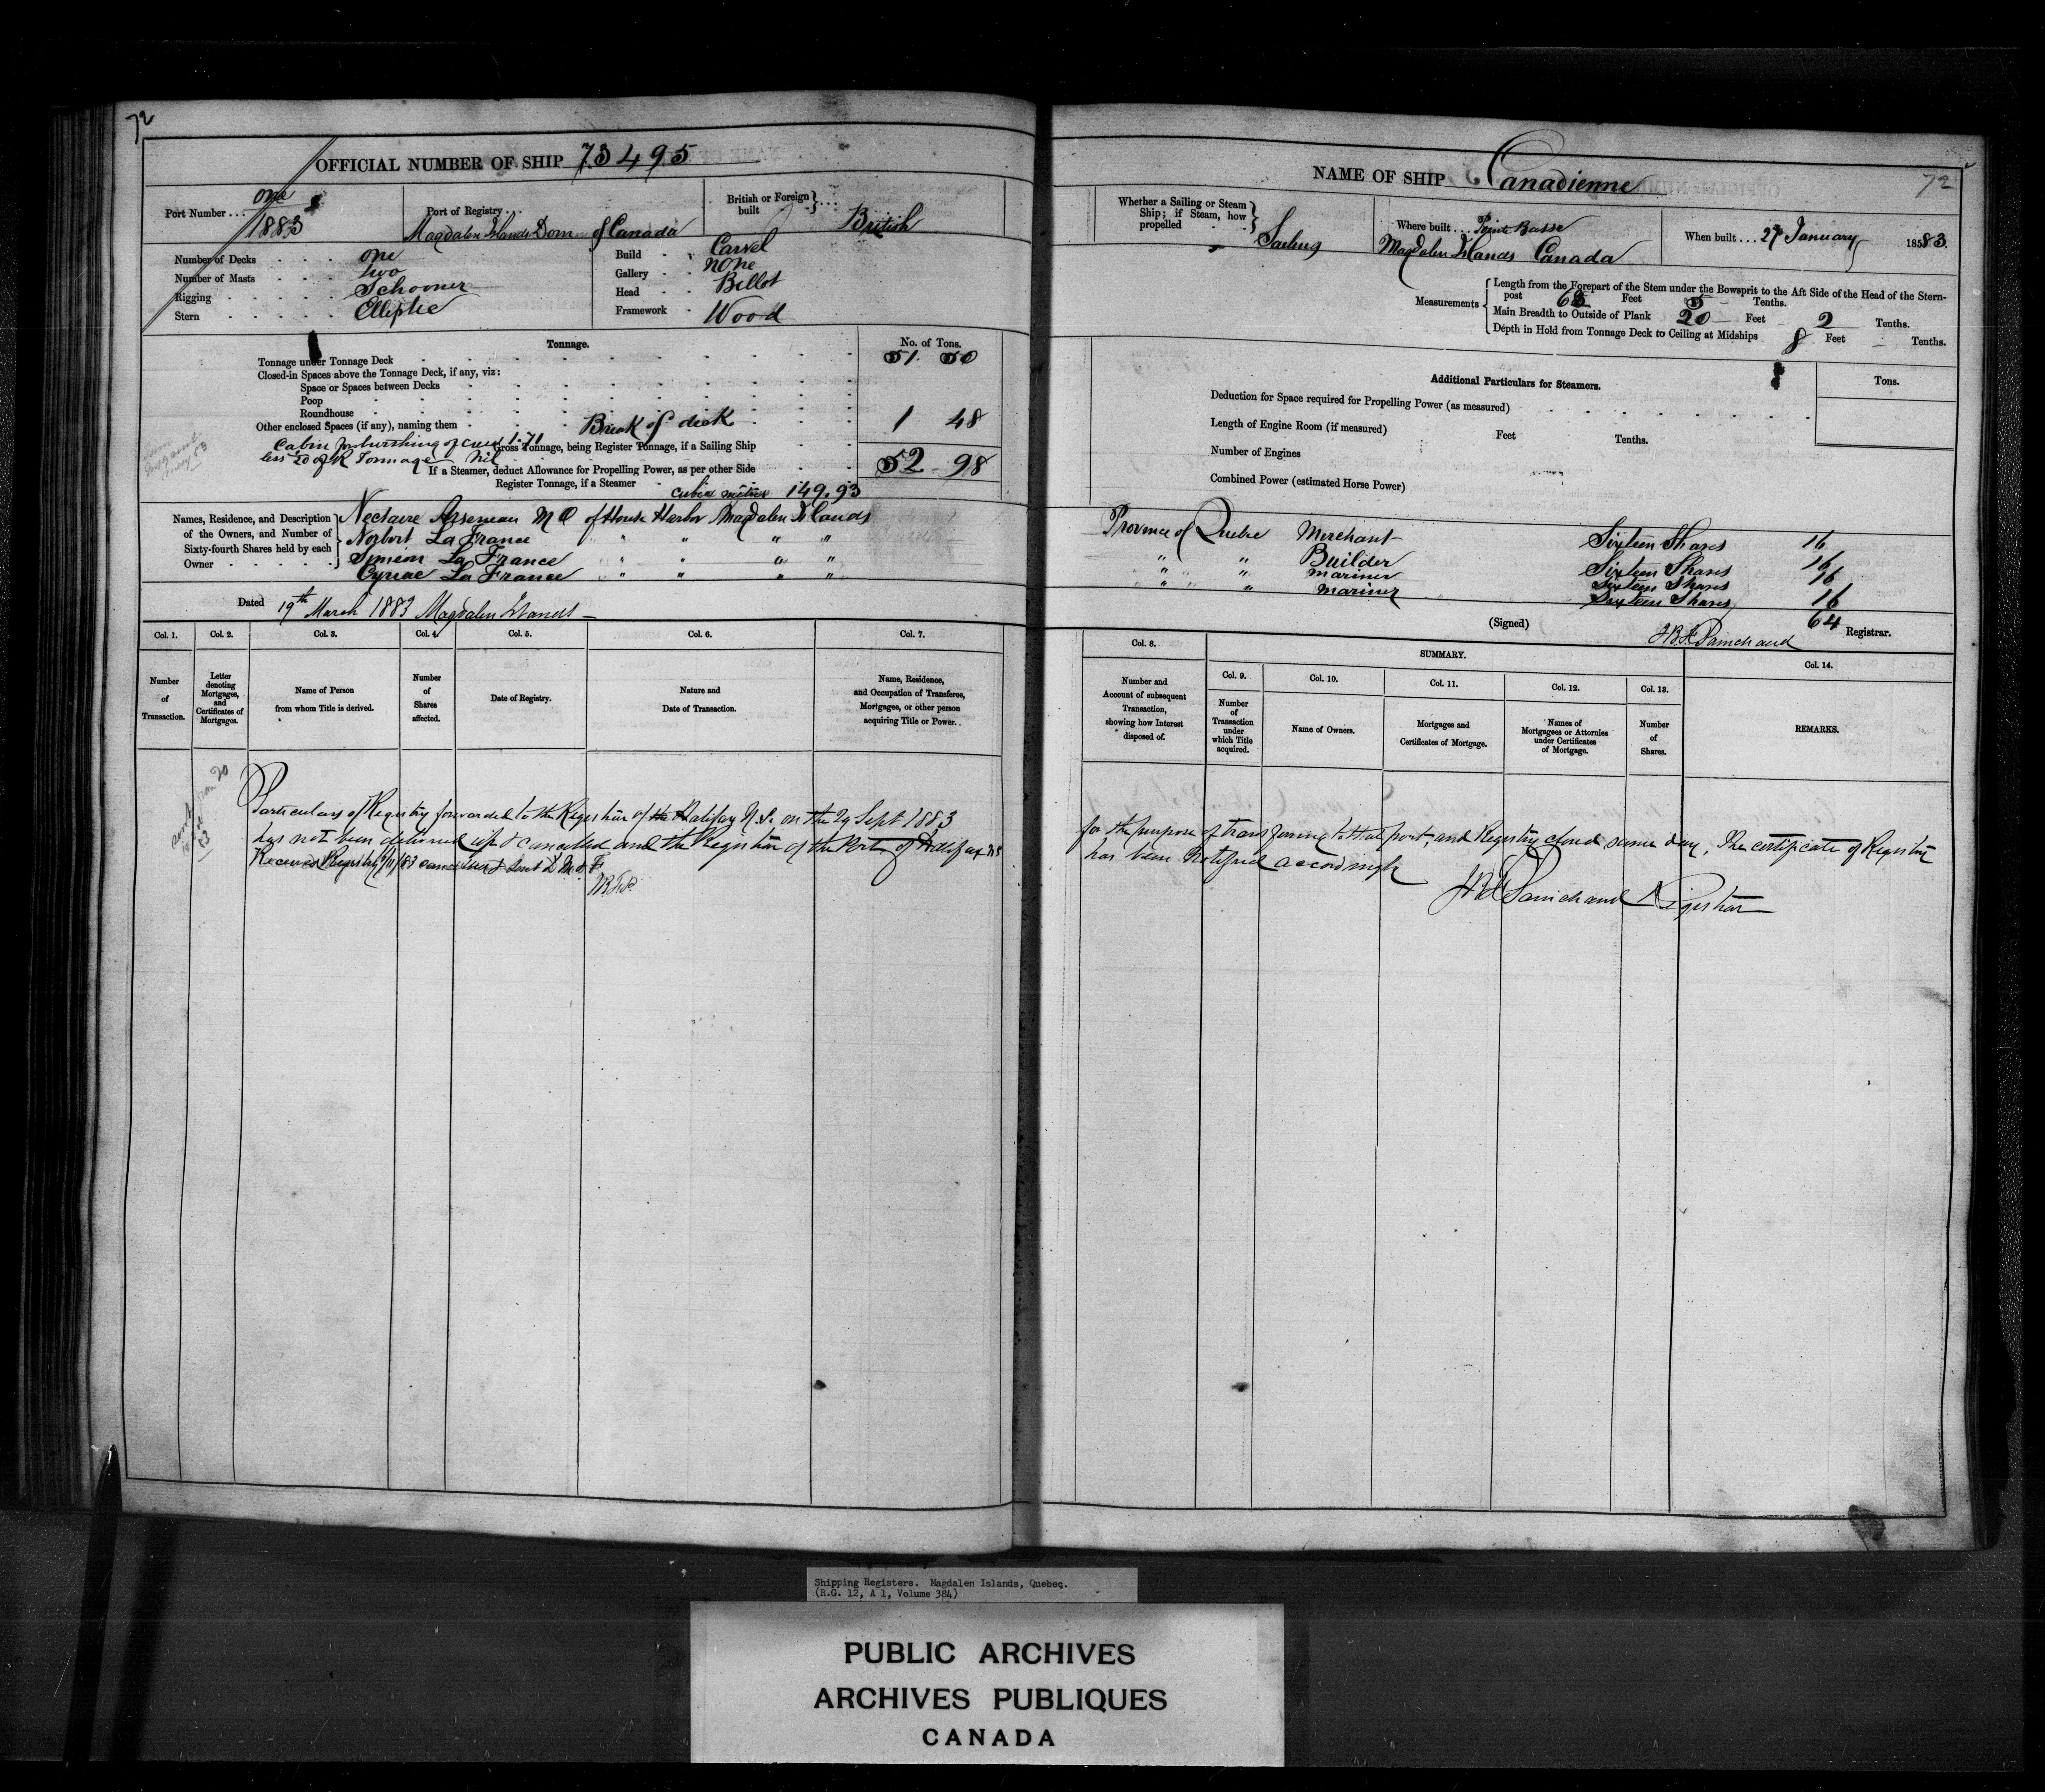 72
OFFICIAL NUMBER OF SHIP 73495
Port Number . . . one
1883
Port of Registry . . .
Magdalen Islands Dom of Canada
British or Foreign built } . . .
British
Number of Decks . . . . one
Number of Masts . . . . two
Rigging . . . . . . Schooner
Stern . . . . . . Elliptic
Build . . Carvel
Gallery . . none
Head . . Billet
Framework . Wood
Tonnage.
No. of Tons.
Tonnage under Tonnage Deck 51 50
Closed-in Spaces above the Tonnage Deck, if any, viz:
Space or Spaces between Decks
Poop
Roundhouse
Other enclosed Spaces (if any), naming them Break of deck 1 48
Cabin for berthing of crew 1.71
Gross Tonnage, being Register Tonnage, if a Sailing Ship 52 98
less 20 of R Tonnage Nil
If a Steamer, deduct Allowance for Propelling Power, as per other Side
Register Tonnage, if a Steamer
cubic metres 149.93
Names, Residence, and Description of the Owners, and Number of Sixty-fourth Shares held by each Owner . . . . . }
Nectaire Arseneau M Q of House Harbor Magdalen Islands
Norbert La France " " " "
Simeon La France " " " "
Cyriac La France " " " "
Dated 19th March 1883 Magdalen Islands
Col. 1. Col. 2. Col. 3. Col. 4. Col. 5. Col. 6. Col. 7.
Number of Transaction.
Letter denoting Mortgages, and Certificates of Mortgages.
Name of Person from whom Title is derived.
Number of Shares affected.
Date of Registry.
Nature and Date of Transaction.
Name, Residence, and Occupation of Transferee, Mortgagee, or other person acquiring Title or Power.
Particulars of Registry forwarded to the Registrar of the Halifax N.S. on the 29 Sept 1883
has not been delivered up & cancelled and the Registrar of the Port of Halifax NS
Received Registry cancelled & sent D M & F
JBFP
NAME OF SHIP Canadienne
72
Whether a Sailing or Steam Ship; if Steam, how propelled }
Sailing
Where built . . . Pointe Basse
Magdalen Islands Canada
When built . . . 27 January 1883.
Measurements {
Length from the Forepart of the Stem under the Bowsprit to the Aft Side of the Head of the Stern-
post Feet 5 Tenths.
Main Breadth to Outside of Plank 20 Feet 2 Tenths.
Depth in Hold from Tonnage Deck to Ceiling at Midships 8 Feet Tenths.
Additional Particulars for Steamers.
Tons.
Deduction for Space required for Propelling Power (as measured)
Length of Engine Room (if measured) Feet Tenths.
Number of Engines
Combined Power (estimated Horse Power)
Province of Quebec Merchant Sixteen Shares 16
" " Builder Sixteen Shares 16
" " mariner Sixteen Shares 16
" " mariner Sixteen Shares 16
64
(Signed) JBF Painchaud Registrar.
Col. 8. SUMMARY. Col. 14.
Col. 9. Col. 10. Col. 11. Col. 12. Col. 13.
Number and Account of subsequent Transaction, showing how Interest disposed of.
Number of Transaction under which Title acquired.
Name of Owners.
Mortgages and Certificates of Mortgage.
Names of Mortgagees or Attornies under Certificates of Mortgage.
Number of Shares.
REMARKS.
for the purpose of transferring to that port, and Registry closed same day, The certificate of Registry
has been Notified accordingly
JBF Painchaud Registrar
Shipping Registers. Magdalen Islands, Quebec.
(R.G. 12, A 1, Volume 384)
PUBLIC ARCHIVES
ARCHIVES PUBLIQUES
CANADA